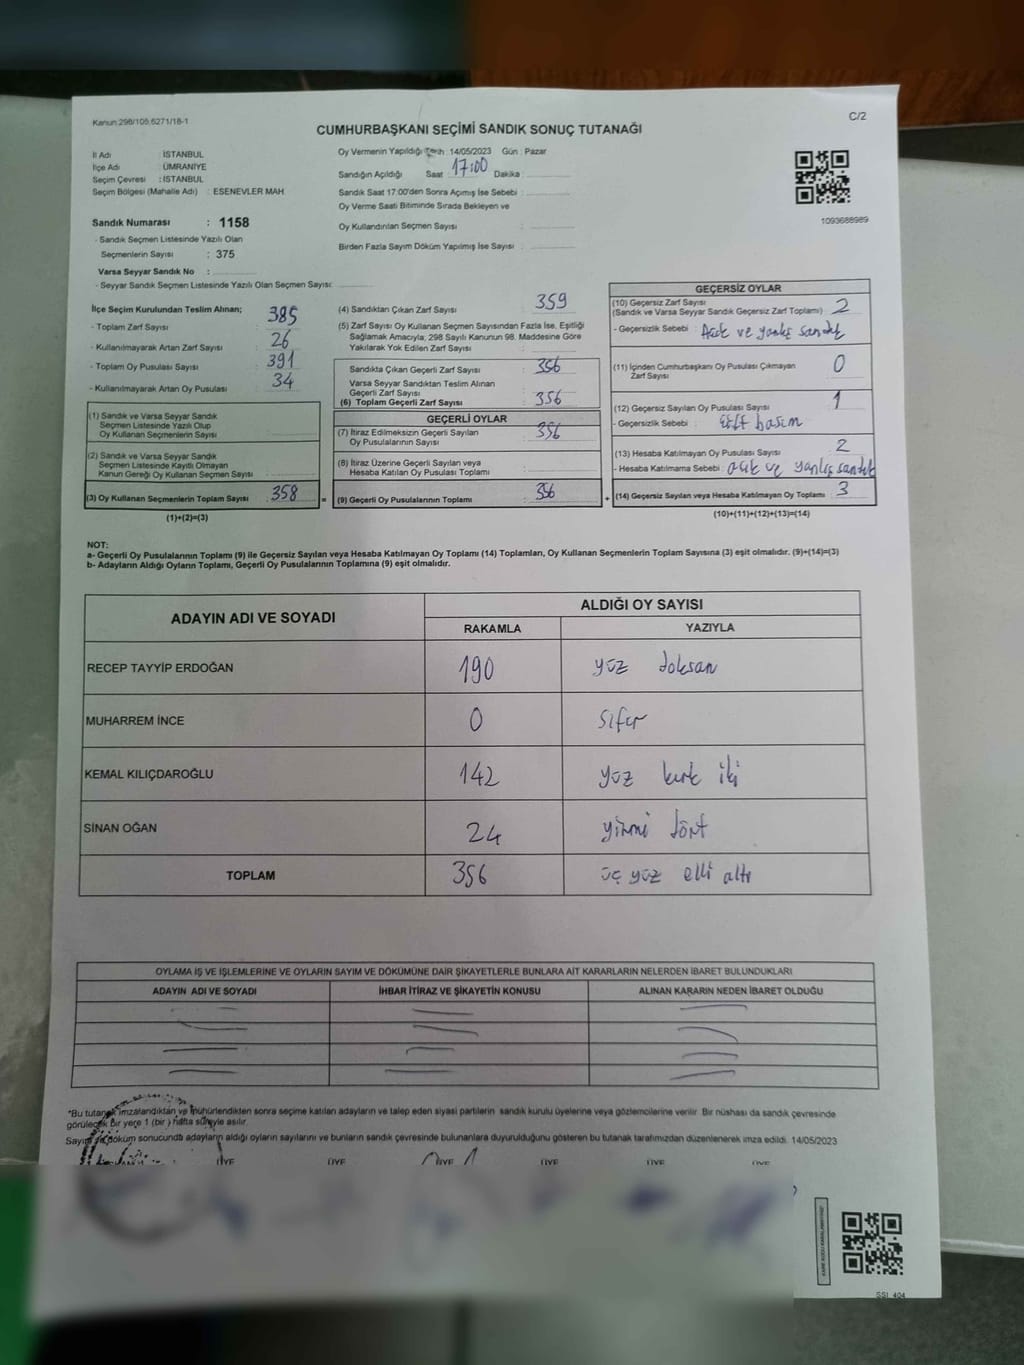 Kanun:298/105,6271/18-1
C/2
CUMHURBAŞKANI SEÇİMİ SANDIK SONUÇ TUTANAĞI
İl Adı : İSTANBUL
İlçe Adı : ÜMRANİYE
Seçim Çevresi : İSTANBUL
Seçim Bölgesi (Mahalle Adı) : ESENEVLER MAH
Sandık Numarası : 1158
- Sandık Seçmen Listesinde Yazılı Olan
Seçmenlerin Sayısı : 375
Varsa Seyyar Sandık No :
- Seyyar Sandık Seçmen Listesinde Yazılı Olan Seçmen Sayısı:
Oy Vermenin Yapıldığı Tarih : 14/05/2023 Gün : Pazar
Sandığın Açıldığı Saat : 17:00 Dakika :
Sandık Saat 17:00'den Sonra Açımış İse Sebebi :
Oy Verme Saati Bitiminde Sırada Bekleyen ve
Oy Kullandırılan Seçmen Sayısı :
Birden Fazla Sayım Döküm Yapılmış İse Sayısı :
1093688989
İlçe Seçim Kurulundan Teslim Alınan;
- Toplam Zarf Sayısı : 385
- Kullanılmayarak Artan Zarf Sayısı : 26
- Toplam Oy Pusulası Sayısı : 391
- Kullanılmayarak Artan Oy Pusulası : 34
(1) Sandık ve Varsa Seyyar Sandık
Seçmen Listesinde Yazılı Olup
Oy Kullanan Seçmenlerin Sayısı :
(2) Sandık ve Varsa Seyyar Sandık
Seçmen Listesinde Kayıtlı Olmayan
Kanun Gereği Oy Kullanan Seçmen Sayısı :
(3) Oy Kullanan Seçmenlerin Toplam Sayısı : 358 =
(1)+(2)=(3)
(4) Sandıktan Çıkan Zarf Sayısı : 359
(5) Zarf Sayısı Oy Kullanan Seçmen Sayısından Fazla İse, Eşitliği
Sağlamak Amacıyla, 298 Sayılı Kanunun 98. Maddesine Göre
Yakılarak Yok Edilen Zarf Sayısı :
Sandıkta Çıkan Geçerli Zarf Sayısı : 356
Varsa Seyyar Sandıktan Teslim Alınan
Geçerli Zarf Sayısı :
(6) Toplam Geçerli Zarf Sayısı : 356
GEÇERLİ OYLAR
(7) İtiraz Edilmeksizin Geçerli Sayılan
Oy Pusulalarının Sayısı : 356
(8) İtiraz Üzerine Geçerli Sayılan veya
Hesaba Katılan Oy Pusulası Toplamı :
(9) Geçerli Oy Pusulalarının Toplamı : 356 +
GEÇERSİZ OYLAR
(10) Geçersiz Zarf Sayısı
(Sandık ve Varsa Seyyar Sandık Geçersiz Zarf Toplamı) : 2
- Geçersizlik Sebebi : Açık ve yanlış sandık
(11) İçinden Cumhurbaşkanı Oy Pusulası Çıkmayan
Zarf Sayısı : 0
(12) Geçersiz Sayılan Oy Pusulası Sayısı : 1
- Geçersizlik Sebebi : çift basım
(13) Hesaba Katılmayan Oy Pusulası Sayısı : 2
- Hesaba Katılmama Sebebi : açık ve yanlış sandık
(14) Geçersiz Sayılan veya Hesaba Katılmayan Oy Toplamı : 3
(10)+(11)+(12)+(13)=(14)
NOT:
a- Geçerli Oy Pusulalarının Toplamı (9) ile Geçersiz Sayılan veya Hesaba Katılmayan Oy Toplamı (14) Toplamları, Oy Kullanan Seçmenlerin Toplam Sayısına (3) eşit olmalıdır. (9)+(14)=(3)
b- Adayların Aldığı Oyların Toplamı, Geçerli Oy Pusulalarının Toplamına (9) eşit olmalıdır.
ADAYIN ADI VE SOYADI
ALDIĞI OY SAYISI
RAKAMLA YAZIYLA
RECEP TAYYİP ERDOĞAN 190 yüz doksan
MUHARREM İNCE 0 sıfır
KEMAL KILIÇDAROĞLU 142 yüz kırk iki
SİNAN OĞAN 24 yirmi dört
TOPLAM 356 üç yüz elli altı
OYLAMA İŞ VE İŞLEMLERİNE VE OYLARIN SAYIM VE DÖKÜMÜNE DAİR ŞİKAYETLERLE BUNLARA AİT KARARLARIN NELERDEN İBARET BULUNDUKLARI
ADAYIN ADI VE SOYADI İHBAR İTİRAZ VE ŞİKAYETİN KONUSU ALINAN KARARIN NEDEN İBARET OLDUĞU
*Bu tutanak imzalandıktan ve mühürlendikten sonra seçime katılan adayların ve talep eden siyasi partilerin sandık kurulu üyelerine veya gözlemcilerine verilir. Bir nüshası da sandık çevresinde
görülecek bir yere 1 (bir) hafta süreyle asılır.
Sayım ve döküm sonucunda adayların aldığı oyların sayılarını ve bunların sandık çevresinde bulunanlara duyurulduğunu gösteren bu tutanak tarafımızdan düzenlenerek imza edildi. 14/05/2023
ÜYE ÜYE ÜYE ÜYE ÜYE ÜYE
SSI_404